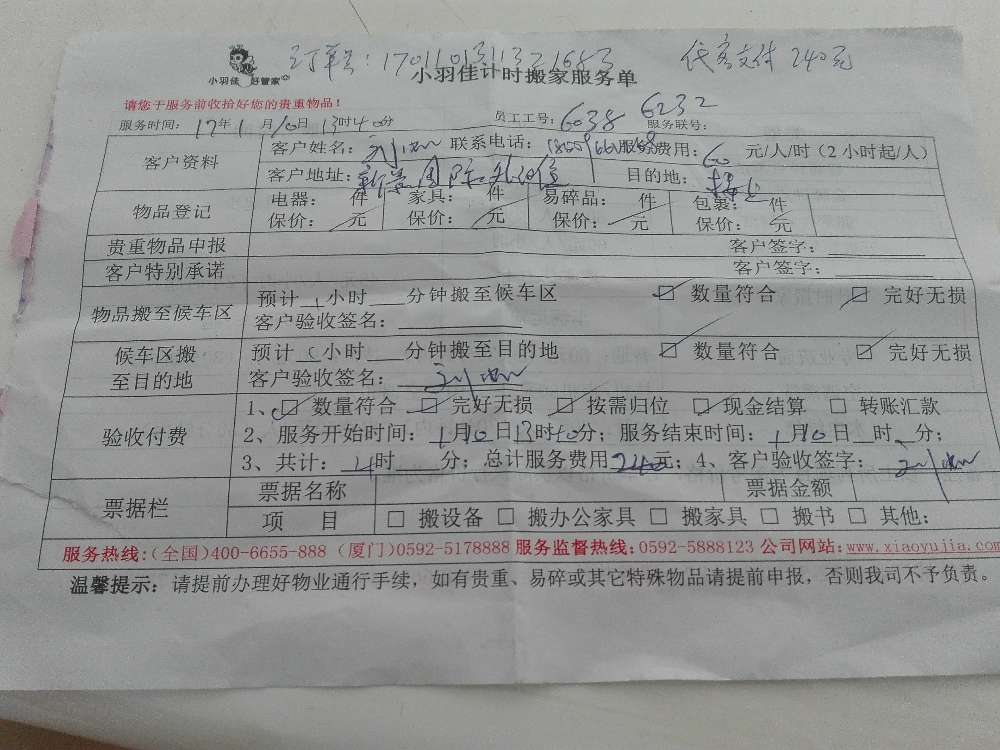 订单号:1701101311321683 代客支付 240元
小羽佳 好管家
小羽佳计时搬家服务单
请您于服务前收拾好您的贵重物品!
服务时间:17年1月10日13时40分 员工工号:6038 6232 服务联号:
客户资料 客户姓名: 联系电话: 服务费用:60 元/人/时(2小时起/人)
客户地址: 目的地:
物品登记 电器: 件 家具: 件 易碎品: 件 包裹: 件
保价: 元 保价: 元 保价: 元 保价: 元
贵重物品申报 客户签字:
客户特别承诺 客户签字:
物品搬至候车区 预计1小时 分钟搬至候车区 ☑ 数量符合 ☑ 完好无损
客户验收签名:
候车区搬至目的地 预计 小时 分钟搬至目的地 ☑ 数量符合 ☑ 完好无损
客户验收签名:
验收付费 1、☑ 数量符合 ☑ 完好无损 ☑ 按需归位 ☑ 现金结算 □ 转账汇款
2、服务开始时间:1月10日13时40分;服务结束时间:1月10日 时 分;
3、共计:4时 分;总计服务费用240元;4、客户验收签字:
票据栏 票据名称 票据金额
项 目 □ 搬设备 □ 搬办公家具 □ 搬家具 □ 搬书 □ 其他:
服务热线:(全国)400-6655-888 (厦门)0592-5178888 服务监督热线:0592-5888123 公司网站:www.xiaoyujia.com
温馨提示:请提前办理好物业通行手续,如有贵重、易碎或其它特殊物品请提前申报,否则我司不予负责。